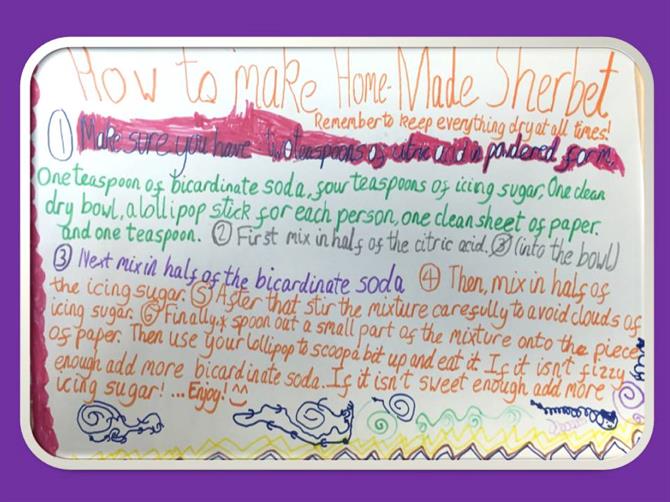 How to make Home-Made Sherbet
Remember to keep everything dry at all times!
① Make sure you have two teaspoons of citric acid in powdered form,
One teaspoon of bicardinate soda, four teaspoons of icing sugar, One clean
dry bowl, a lollipop stick for each person, one clean sheet of paper.
and one teaspoon. ② First mix in half of the citric acid. ③ (into the bowl)
③ Next mix in half of the bicardinate soda ④ Then, mix in half of
the icing sugar. ⑤ After that stir the mixture carefully to avoid clouds of
icing sugar. ⑥ Finally, spoon out a small part of the mixture onto the piece
of paper. Then use your lollipop to scoop a bit up and eat it. If it isn't fizzy
enough add more bicardinate soda. If it isn't sweet enough add more
icing sugar! ... Enjoy!